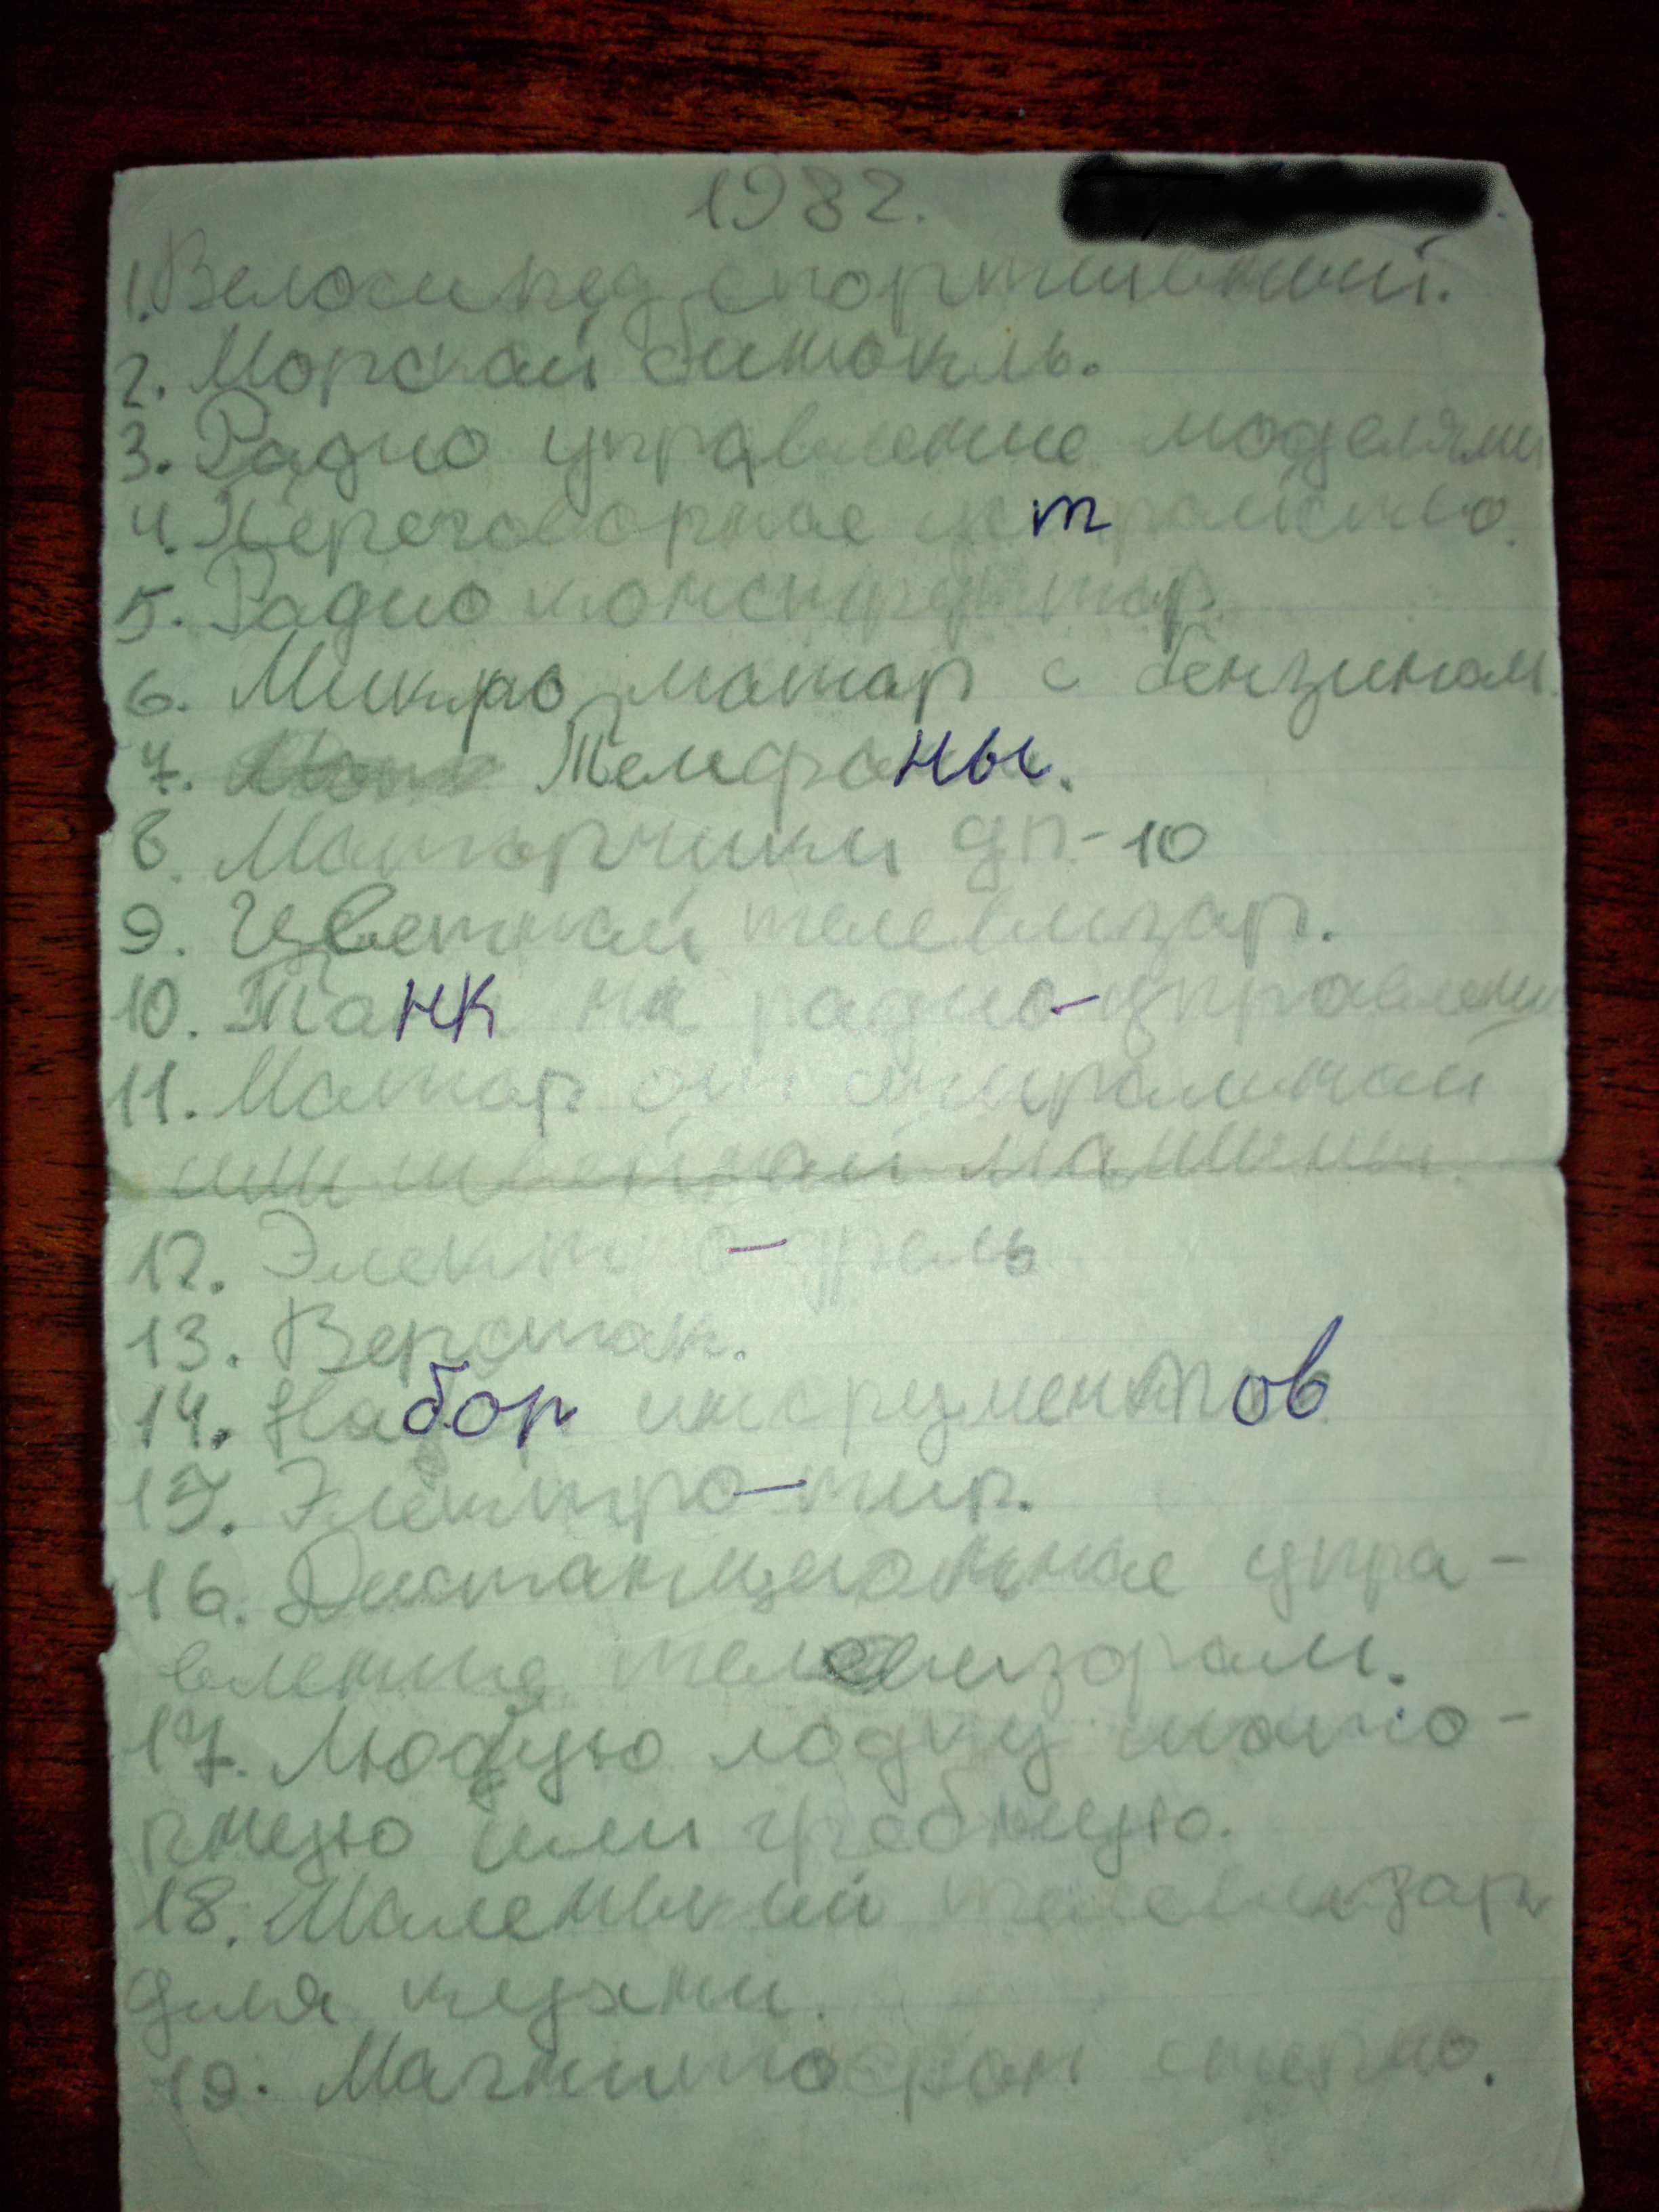 1982.
1. Велосипед спортивный.
2. Морской бинокль.
3. Радио управление моделями
4. Переговорное устройство.
5. Радио конструктор
6. Микро матор с бензином.
7. Телефоны.
8. Маторчики дп-10
9. Цветной телевизар.
10. Танк на радио-управлении
11. Матор от стиральной
или швейной машины.
12. Электро-дрель
13. Верстак.
14. Набор инсрументов
15. Электро-тир.
16. Дистанционное упра-
вление телевизорам.
17. Любую лодку мото-
рную или гребную.
18. Маленький телевизар
для кухни.
19. Магнитофон стерио.